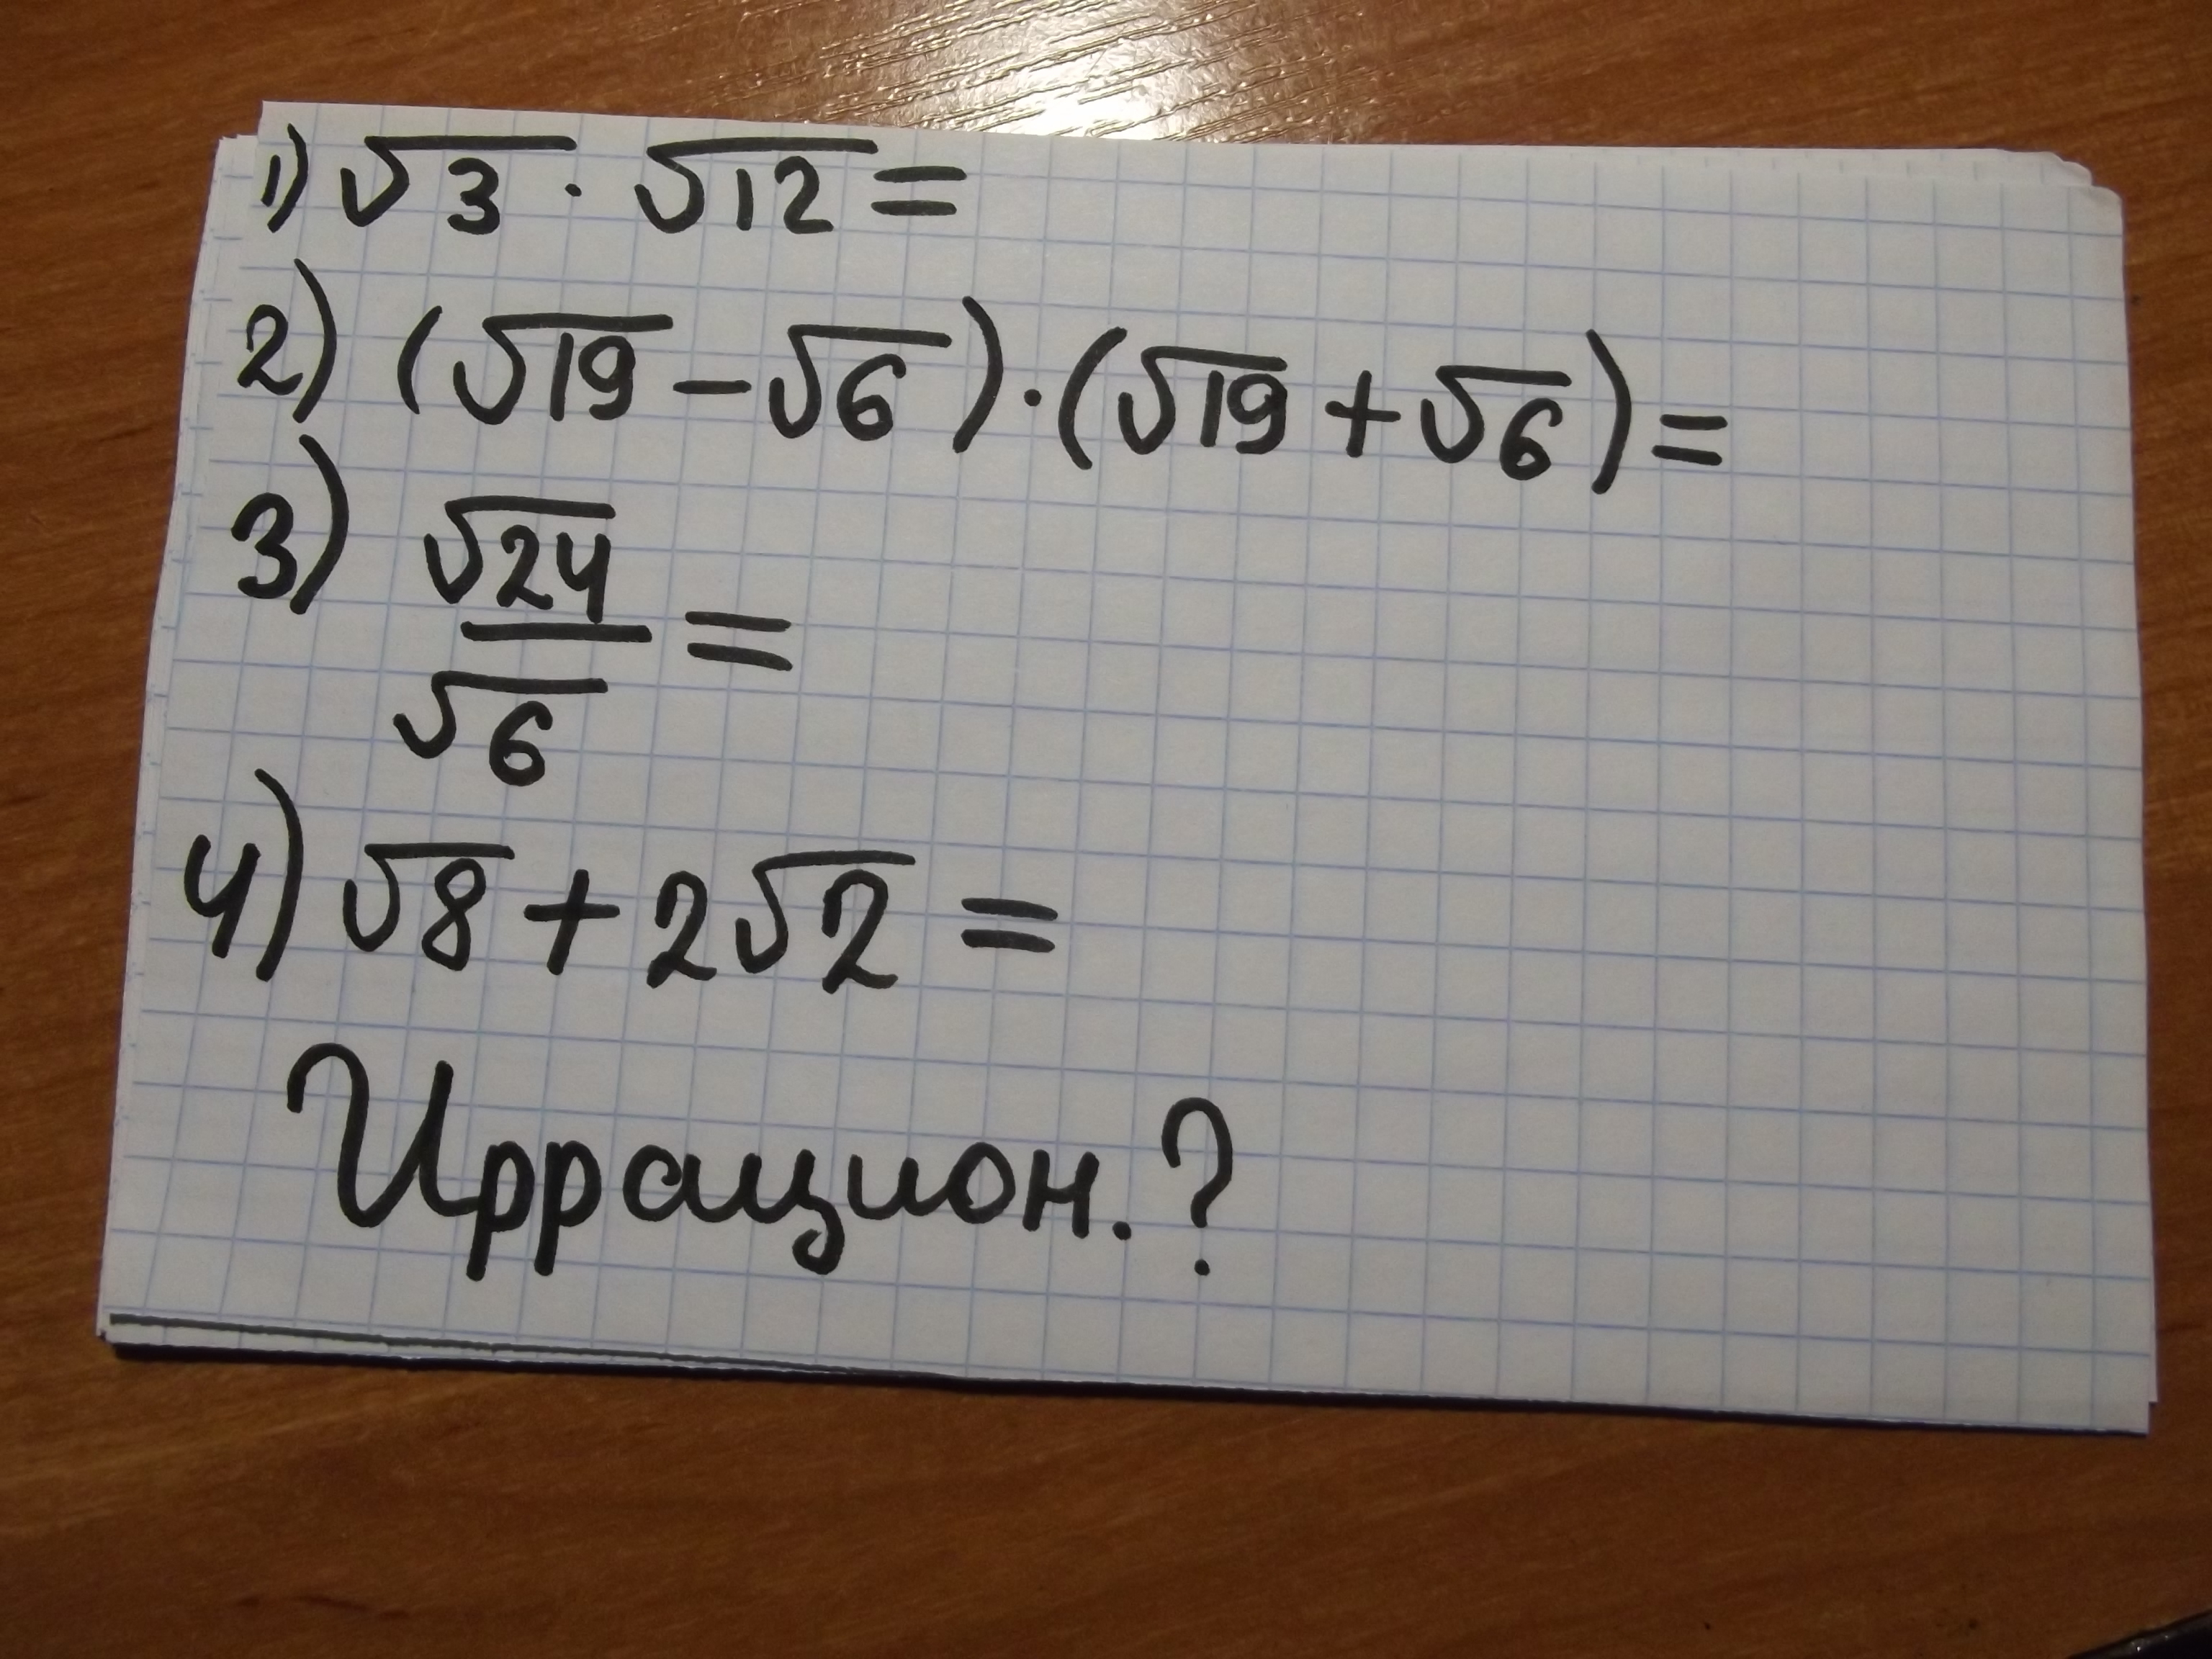 1) √3 · √12 =
2) (√19 − √6) · (√19 + √6) =
3) √24
—— =
√6
4) √8 + 2√2 =
Иррацион.?